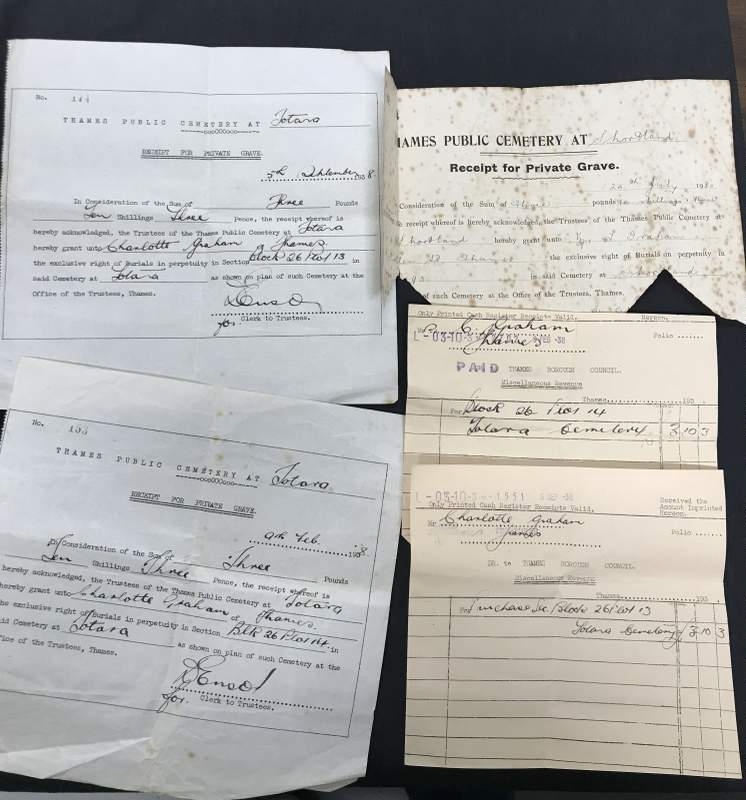 No. 144
THAMES PUBLIC CEMETERY AT Totara
RECEIPT FOR PRIVATE GRAVE.
5th September 1938
In Consideration of the Sum of Three Pounds
Ten Shillings Three Pence, the receipt whereof is
hereby acknowledged, the Trustees of the Thames Public Cemetery at Totara
hereby grant unto Charlotte Graham of Thames
the exclusive right of Burials in perpetuity in Section Block 26 Plot 13 in
said Cemetery at Totara as shown on plan of such Cemetery at the
Office of the Trustees, Thames.
for Clerk to Trustees.
THAMES PUBLIC CEMETERY AT Shortland
Receipt for Private Grave.
July 19
Consideration of the Sum of Three pounds
receipt whereof is hereby acknowledged, the Trustees of the Thames Public Cemetery at
Shortland hereby grant unto Graham
Thames the exclusive right of Burials in perpetuity In
in said Cemetery at Shortland
of such Cemetery at the Office of the Trustees, Thames.
Only Printed Cash Register Receipts Valid. Hereon.
C. Graham Folio
Thames
L-03-10-3 FEB -38
PAID THAMES BOROUGH COUNCIL.
Miscellaneous Revenue
Thames 193
For Block 26 Plot 14
Totara Cemetery 3 10 3
No. 133
THAMES PUBLIC CEMETERY AT Totara
RECEIPT FOR PRIVATE GRAVE.
9th Feb. 1938
In Consideration of the Sum of Three Pounds
Ten Shillings Three Pence, the receipt whereof is
hereby acknowledged, the Trustees of the Thames Public Cemetery at Totara
hereby grant unto Charlotte Graham of Thames.
the exclusive right of Burials in perpetuity in Section Blk 26 Plot 14 in
said Cemetery at Totara as shown on plan of such Cemetery at the
Office of the Trustees, Thames.
for Clerk to Trustees.
L-03-10-3 1551 5 SEP -38
Received the
Only Printed Cash Register Receipts Valid. Account Imprinted
Hereon.
Mr Charlotte Graham
Thames Folio
DR. to THAMES BOROUGH COUNCIL.
Miscellaneous Revenue
Thames 193
For Purchase Block 26 Plot 13
Totara Cemetery 3 10 3